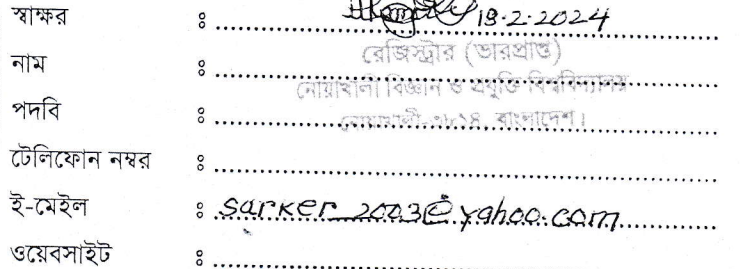 স্বাক্ষর ঃ 18.2.2024
নাম ঃ রেজিস্ট্রার (ভারপ্রাপ্ত)
নোয়াখালী বিজ্ঞান ও প্রযুক্তি বিশ্ববিদ্যালয়
পদবি ঃ নোয়াখালী-৩৮১৪, বাংলাদেশ।
টেলিফোন নম্বর ঃ
ই-মেইল ঃ sarker_2003@yahoo.com
ওয়েবসাইট ঃ